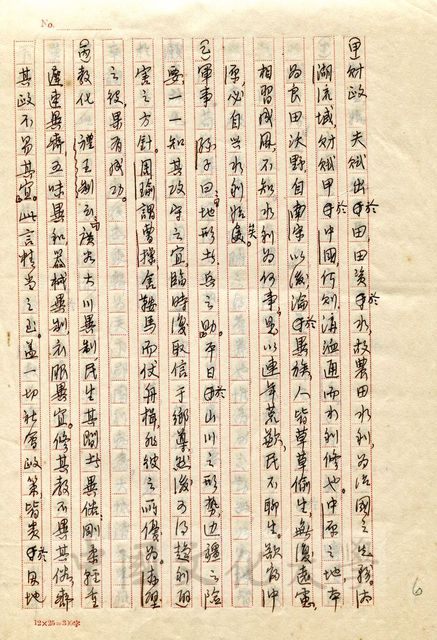 No.
甲財政 夫賦出於田,田資於水,故農田水利,為治國之先務。太
湖流域財賦甲於中國,何則,溝洫通而水利修也。中原之地本
為良田沃野,自南宋以後淪於異族人皆草草偷生,無復遠慮,
相習成風,不知水利為何事,是以連年荒歉,民不聊生。欲富中
原,必自興水利始矣。
乙軍事 孫子曰:地形者兵之助。平日於山川之形勢,邊疆之險
要,一一知其攻守之宜,臨時復取信于鄉導,然後可得趨利避
害之方針。周瑜謂曹操舍鞍馬而仗舟楫,非彼之所優為,赤壁
之役,果有成功。
丙教化 禮王制云:廣谷大川異制,民生其間者異俗,剛柔輕重
遲速異齊,五味異和,器械異制,衣服異宜。修其教不異其俗,齊
其政不易其宜。此言精當之至。蓋一切社會政策皆貴於因地
6
12×25=300字